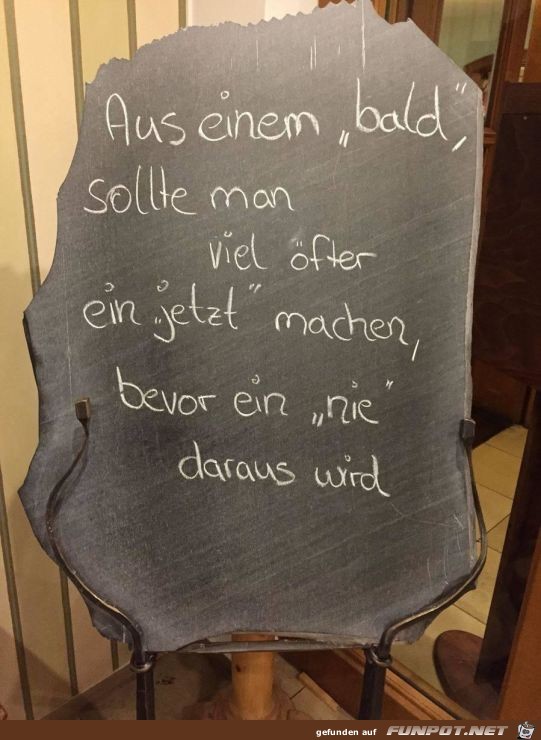 Aus einem „bald",
sollte man
viel öfter
ein „jetzt" machen,
bevor ein „nie"
daraus wird
gefunden auf FUNPOT.NET